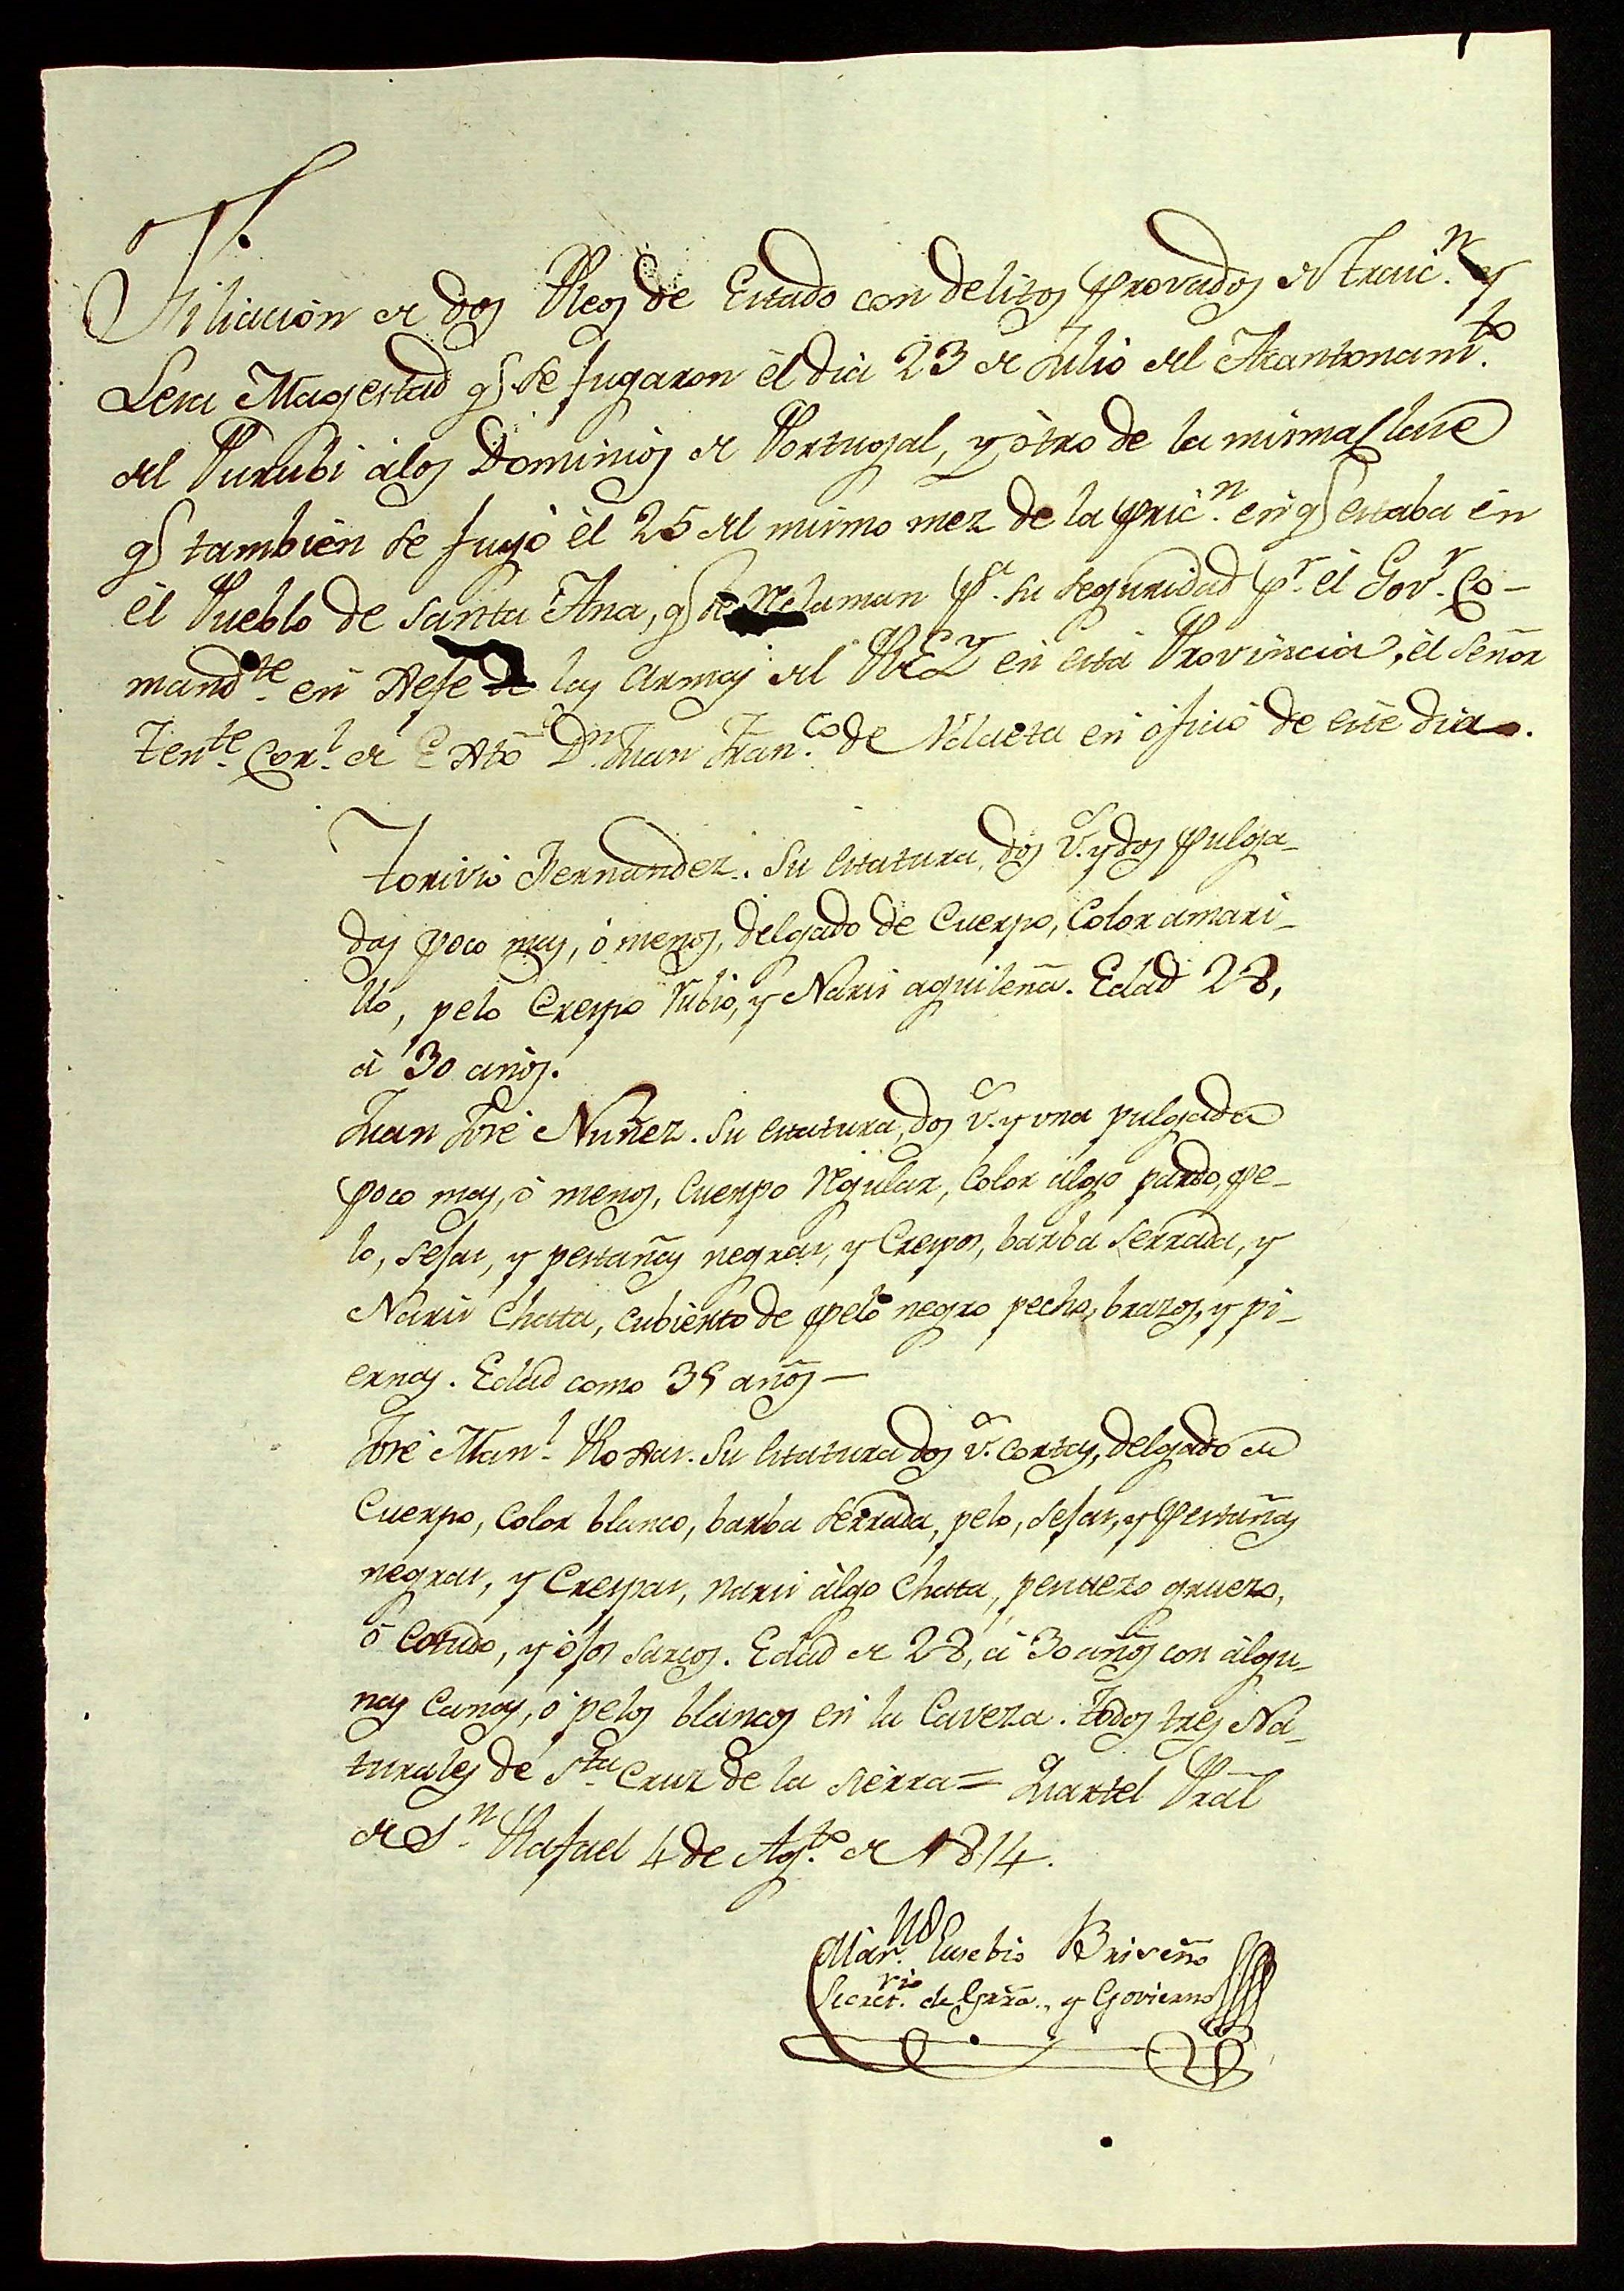 Filiacion de dos Reos de Estado con delitos provados de traic.n y
Lesa Magestad q.e se fugaron él dia 23 de Julio del Acantonam.to
del Purubi álos Dominios de Portugal, y ótro de la misma Clase
q.e tambien se fugó él 25 del mismo mez de la pric.n en q.e estaba en
él Pueblo de Santa Ana, q.e se Reclaman p.a su seguridad p.r él Gov.r Co-
mand.te en Xefe de las Armas del REY en esta Provincia, él Señor
Ten.te Cor.l de Exto D.n Juan Fran.co de Udaeta en óficio de este dia.
Torivio Fernandez. Su estatura, dos v.s y dos pulga-
das poco mas, ó menos, delgado de Cuerpo, Color amari-
llo, pelo Crespo Rubio, y Naris aguileña. Edad 28,
á 30 años.
Juan José Nuñez. Su estatura, dos v.s y una pulgada
poco mas, ó menos, Cuerpo Regular, Color álgo pardo, pe-
lo, sejas, y pestañas negras, y Crespos, barba serrada, y
Naris Chata, cubierto de pelo negro pecho, brazos, y pi-
ernas. Edad como 35 años—
José Man.l Roxas. Su estatura dos v.s cortas, delgado de
Cuerpo, Color blanco, barba serrada, pelo, sejas, y Pestañas
negras, y Crespas, naris álgo Chata, pescuezo gruezo,
ó Cotudo, y ójos sarcos. Edad de 28, á 30 años con álgu-
nas Canas, ó pelos blancos en la Caveza. Todos tres Na-
turales de S.ta Cruz de la Sierra = Quartel Pral
de S.n Rafael 4 de Ag.to de 1814.
Mar.no Eusebio Briseño
Secret.rio de Grra., y Govierno